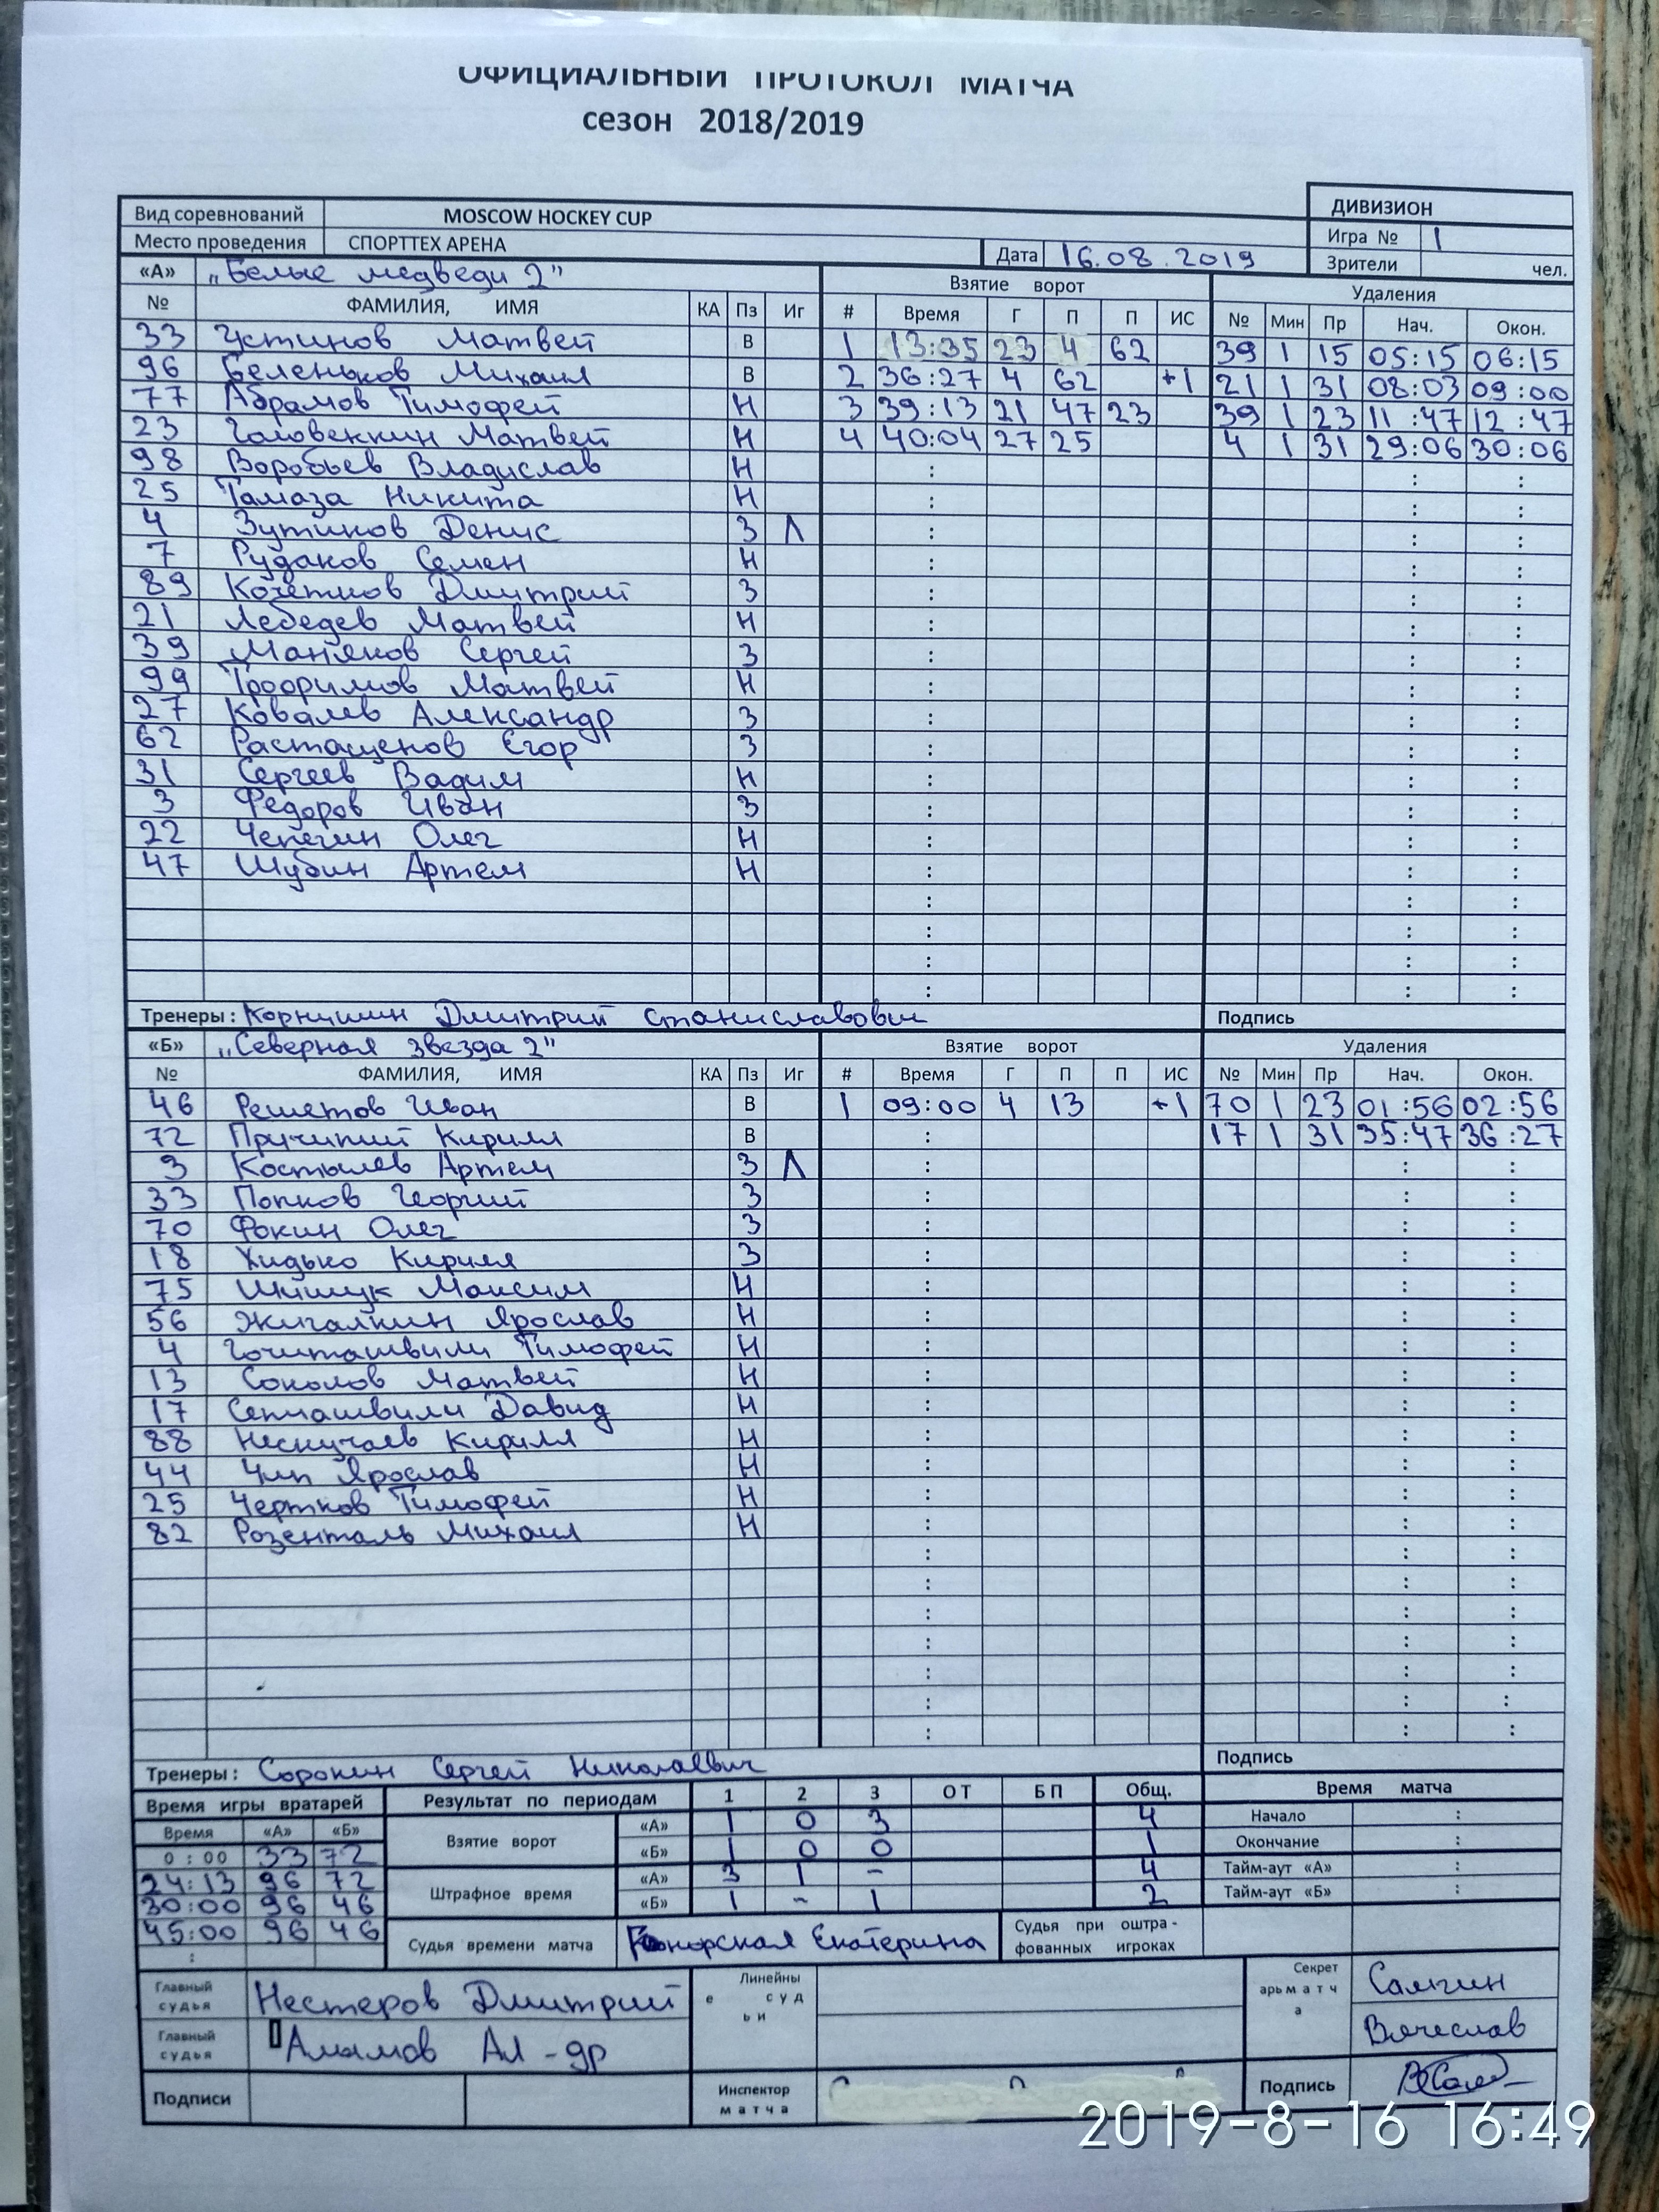 ОФИЦИАЛЬНЫЙ ПРОТОКОЛ МАТЧА
сезон 2018/2019
ДИВИЗИОН
Вид соревнований MOSCOW HOCKEY CUP
Игра № 1
Место проведения СПОРТТЕХ АРЕНА Дата 16.08.2019
Зрители чел.
«А» „Белые медведи 2" Взятие ворот Удаления
№ ФАМИЛИЯ, ИМЯ КА Пз Иг # Время Г П П ИС № Мин Пр Нач. Окон.
33 Устинов Матвей В 1 13:35 23 4 62 39 1 15 05:15 06:15
96 Беленьков Михаил В 2 36:27 4 62 +1 21 1 31 08:03 09:00
77 Абрамов Тимофей Н 3 39:13 21 47 23 39 1 23 11:47 12:47
23 Головенкин Матвей Н 4 40:04 27 25 4 1 31 29:06 30:06
98 Воробьев Владислав Н : : :
25 Тамаза Никита Н : : :
4 Зутиков Денис З Л : : :
7 Рудаков Семен Н : : :
89 Кочетков Дмитрий З : : :
21 Лебедев Матвей Н : : :
39 Маняков Сергей З : : :
99 Трофимов Матвей Н : : :
27 Ковалев Александр З : : :
62 Растащенов Егор З : : :
31 Сергеев Вадим Н : : :
3 Федоров Иван З : : :
22 Чепегин Олег Н : : :
47 Шубин Артем Н : : :
: : :
: : :
: : :
: : :
Тренеры: Дмитрий Станиславович Подпись
«Б» „Северная звезда 2" Взятие ворот Удаления
№ ФАМИЛИЯ, ИМЯ КА Пз Иг # Время Г П П ИС № Мин Пр Нач. Окон.
46 Решетов Иван В 1 09:00 4 13 +1 70 1 23 01:56 02:56
72 Кирилл В : 17 1 31 35:47 36:27
3 Костылев Артем З Л : : :
33 Попков Георгий З : : :
70 Фокин Олег З : : :
18 Хидько Кирилл З : : :
75 Шишук Максим Н : : :
56 Жигалкин Ярослав Н : : :
4 Гочиташвили Тимофей Н : : :
13 Соколов Матвей Н : : :
17 Сепиашвили Давид Н : : :
88 Нескучаев Кирилл Н : : :
44 Чип Ярослав Н : : :
25 Чертков Тимофей Н : : :
82 Розенталь Михаил Н : : :
: : :
: : :
: : :
: : :
: : :
: : :
: : :
Тренеры: Сорокин Сергей Николаевич Подпись
Время игры вратарей Результат по периодам 1 2 3 ОТ БП Общ. Время матча
Время «А» «Б» Взятие ворот «А» 1 0 3 4 Начало :
0:00 33 72 «Б» 1 0 0 1 Окончание :
24:13 96 72 Штрафное время «А» 3 1 - 4 Тайм-аут «А» :
30:00 96 46 «Б» 1 - 1 2 Тайм-аут «Б» :
45:00 96 46 Судья времени матча Екатерина Судья при оштра-
: фованных игроках
Главный судья Нестеров Дмитрий Линейны е суд ьи Секрет арь матч а Салгин
Главный судья Ал-др Вячеслав
Подписи Инспектор матча Подпись
2019-8-16 16:49